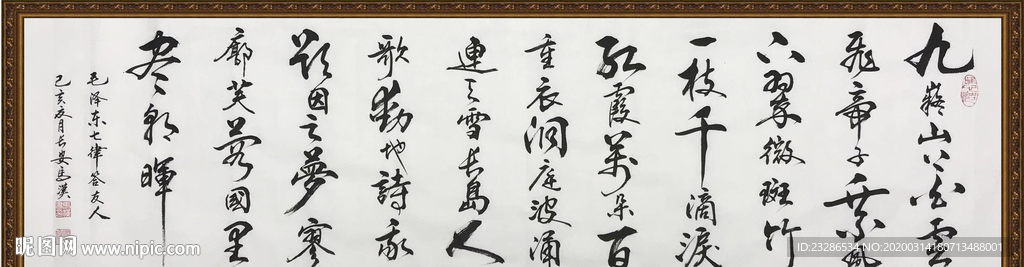 九嶷山上白雲
飛帝子乘風
下翠微斑竹
一枝千滴淚
紅霞萬朵百
重衣洞庭波涌
連天雪长島人
歌動地詩我
欲因之夢寥
廓芙蓉國里
尽朝暉
毛泽东七律答友人
己亥夏月长安馬漢
昵图网 www.nipic.com
ID:23286534 NO:20200314160713488001